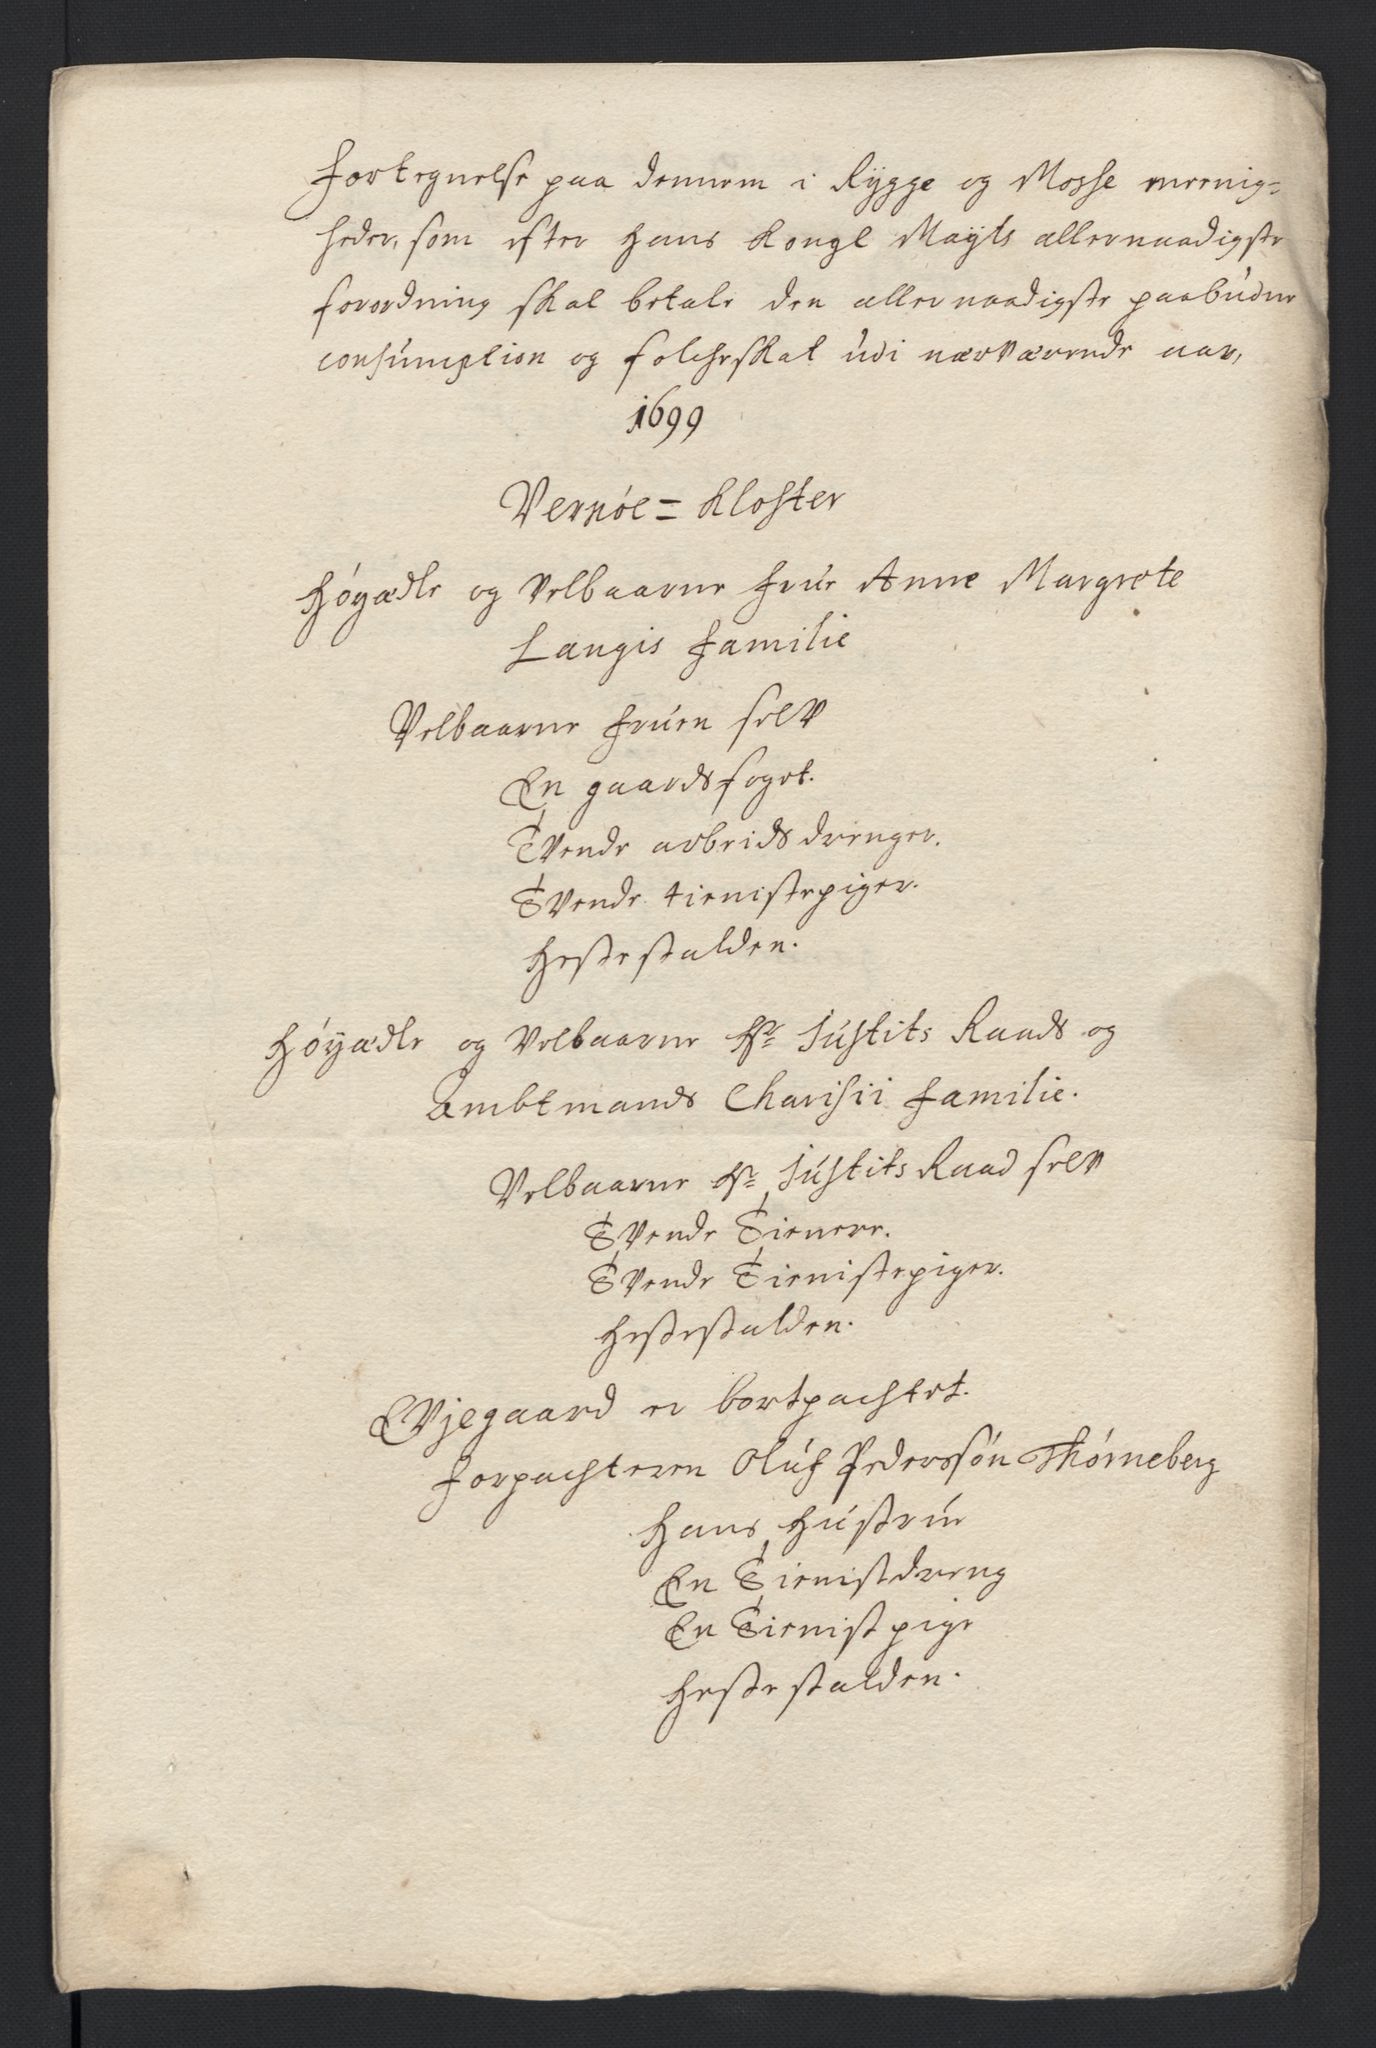 Fortegnelse paa dennem i Rygge og Mosse meenig=
heder, som efter Hans Kongl Mayts allernaadigste
forordning skal betale den allernaadigste paabudne
consumption og folcheskat udi nærværende aar,
1699
Vernøe = Kloster
Høyædle og Velbaarne Frue Anne Margrete
Langis Familie
Velbaarne Fruen selv
En gaardsfoget.
Tvende arbeids drenger.
Tvende tienistepiger.
Hestestalden.
Høyædle og Velbaarne Hr Justits Raads og
Ambtmands Charisii Familie.
Velbaarne Hr Justits Raad selv
Tvende Tienere.
Tvende Tienistepiger.
Hestestalden.
Evjegaard er bortpachtet.
Forpachteren Oluf Pederssøn Thørneberg
Hans Hustrue
En Tienistdreng
En Tienistpige
Hestestalden.